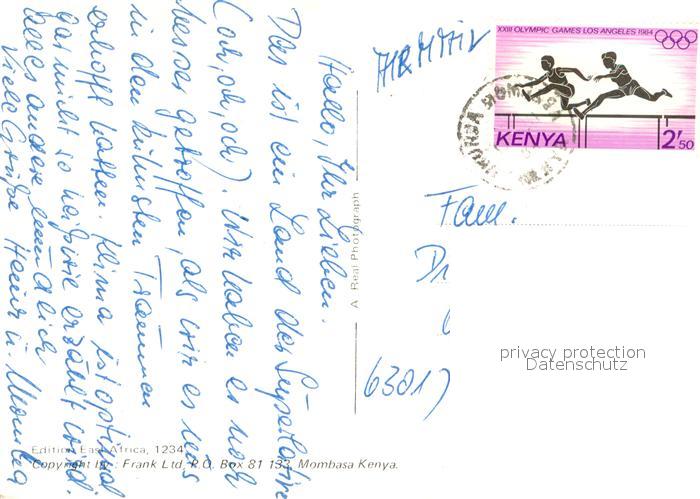 Hallo, Ihr Lieben.
Das ist ein Land der Superlative
(oh, oh, oh). Wir haben es noch
besser getroffen, als wir es uns
in den kühnsten Träumen
erhofft hatten. Klima ist optimal
gar nicht so wie erzählt wird.
alles andere
Viele Grüße Heinz u. Monika
AIRMAIL
XXIII OLYMPIC GAMES LOS ANGELES 1984
KENYA 2/50
Fam.
6301
A Real Photograph
privacy protection
Datenschutz
Edition East Africa, 1234
Copyright by: Frank Ltd, P.O. Box 81 133, Mombasa Kenya.